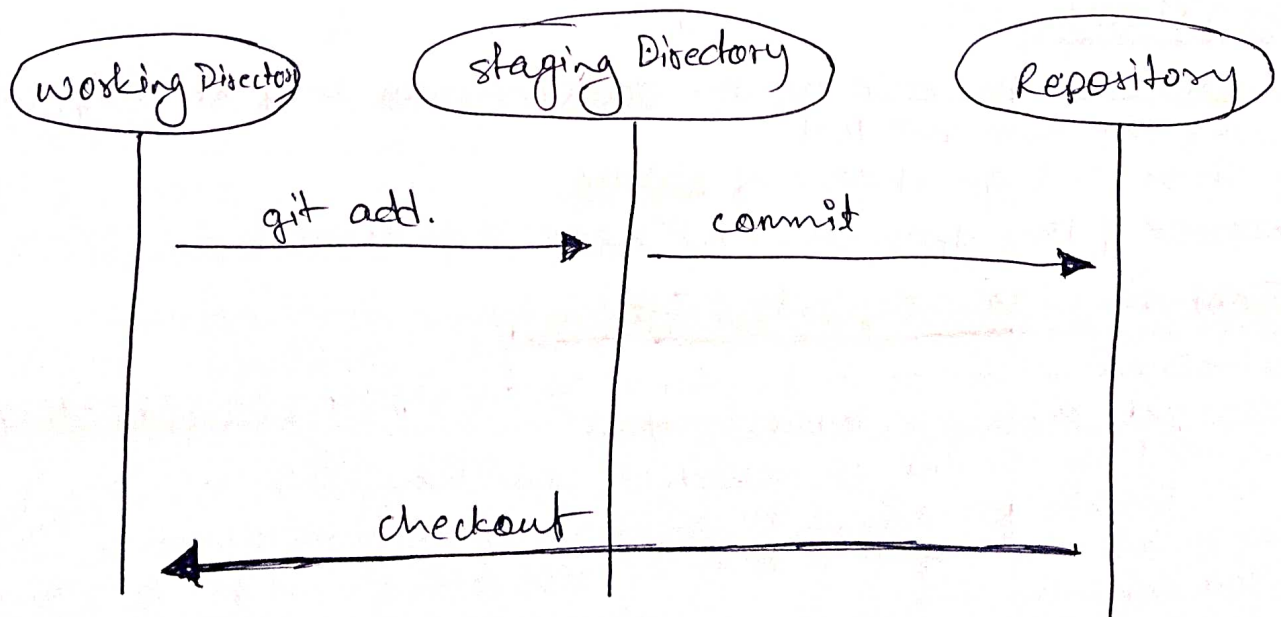 working Directory
staging Directory
Repository
git add.
commit
checkout